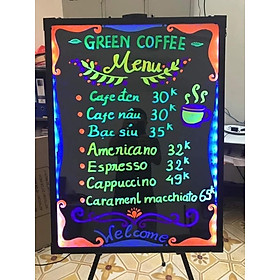 GREEN COFFEE
Menu
Cafe đen 30K
Cafe nâu 30K
Bạc síu 35K
Americano 32K
Espresso 32K
Cappuccino 49K
Carament macchiato 65K
Welcome